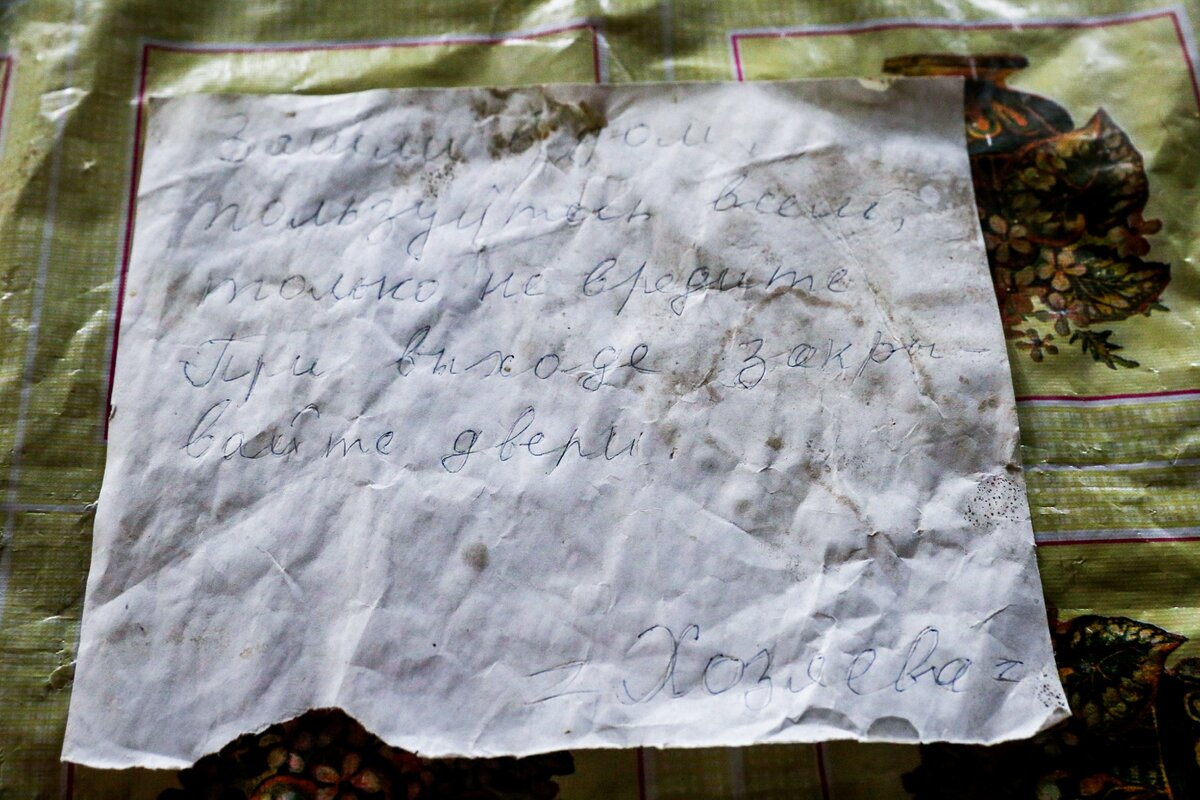 Зашли в дом,
пользуйтесь всем,
только не вредите
При выходе закры-
вайте двери.
= Хозяева =